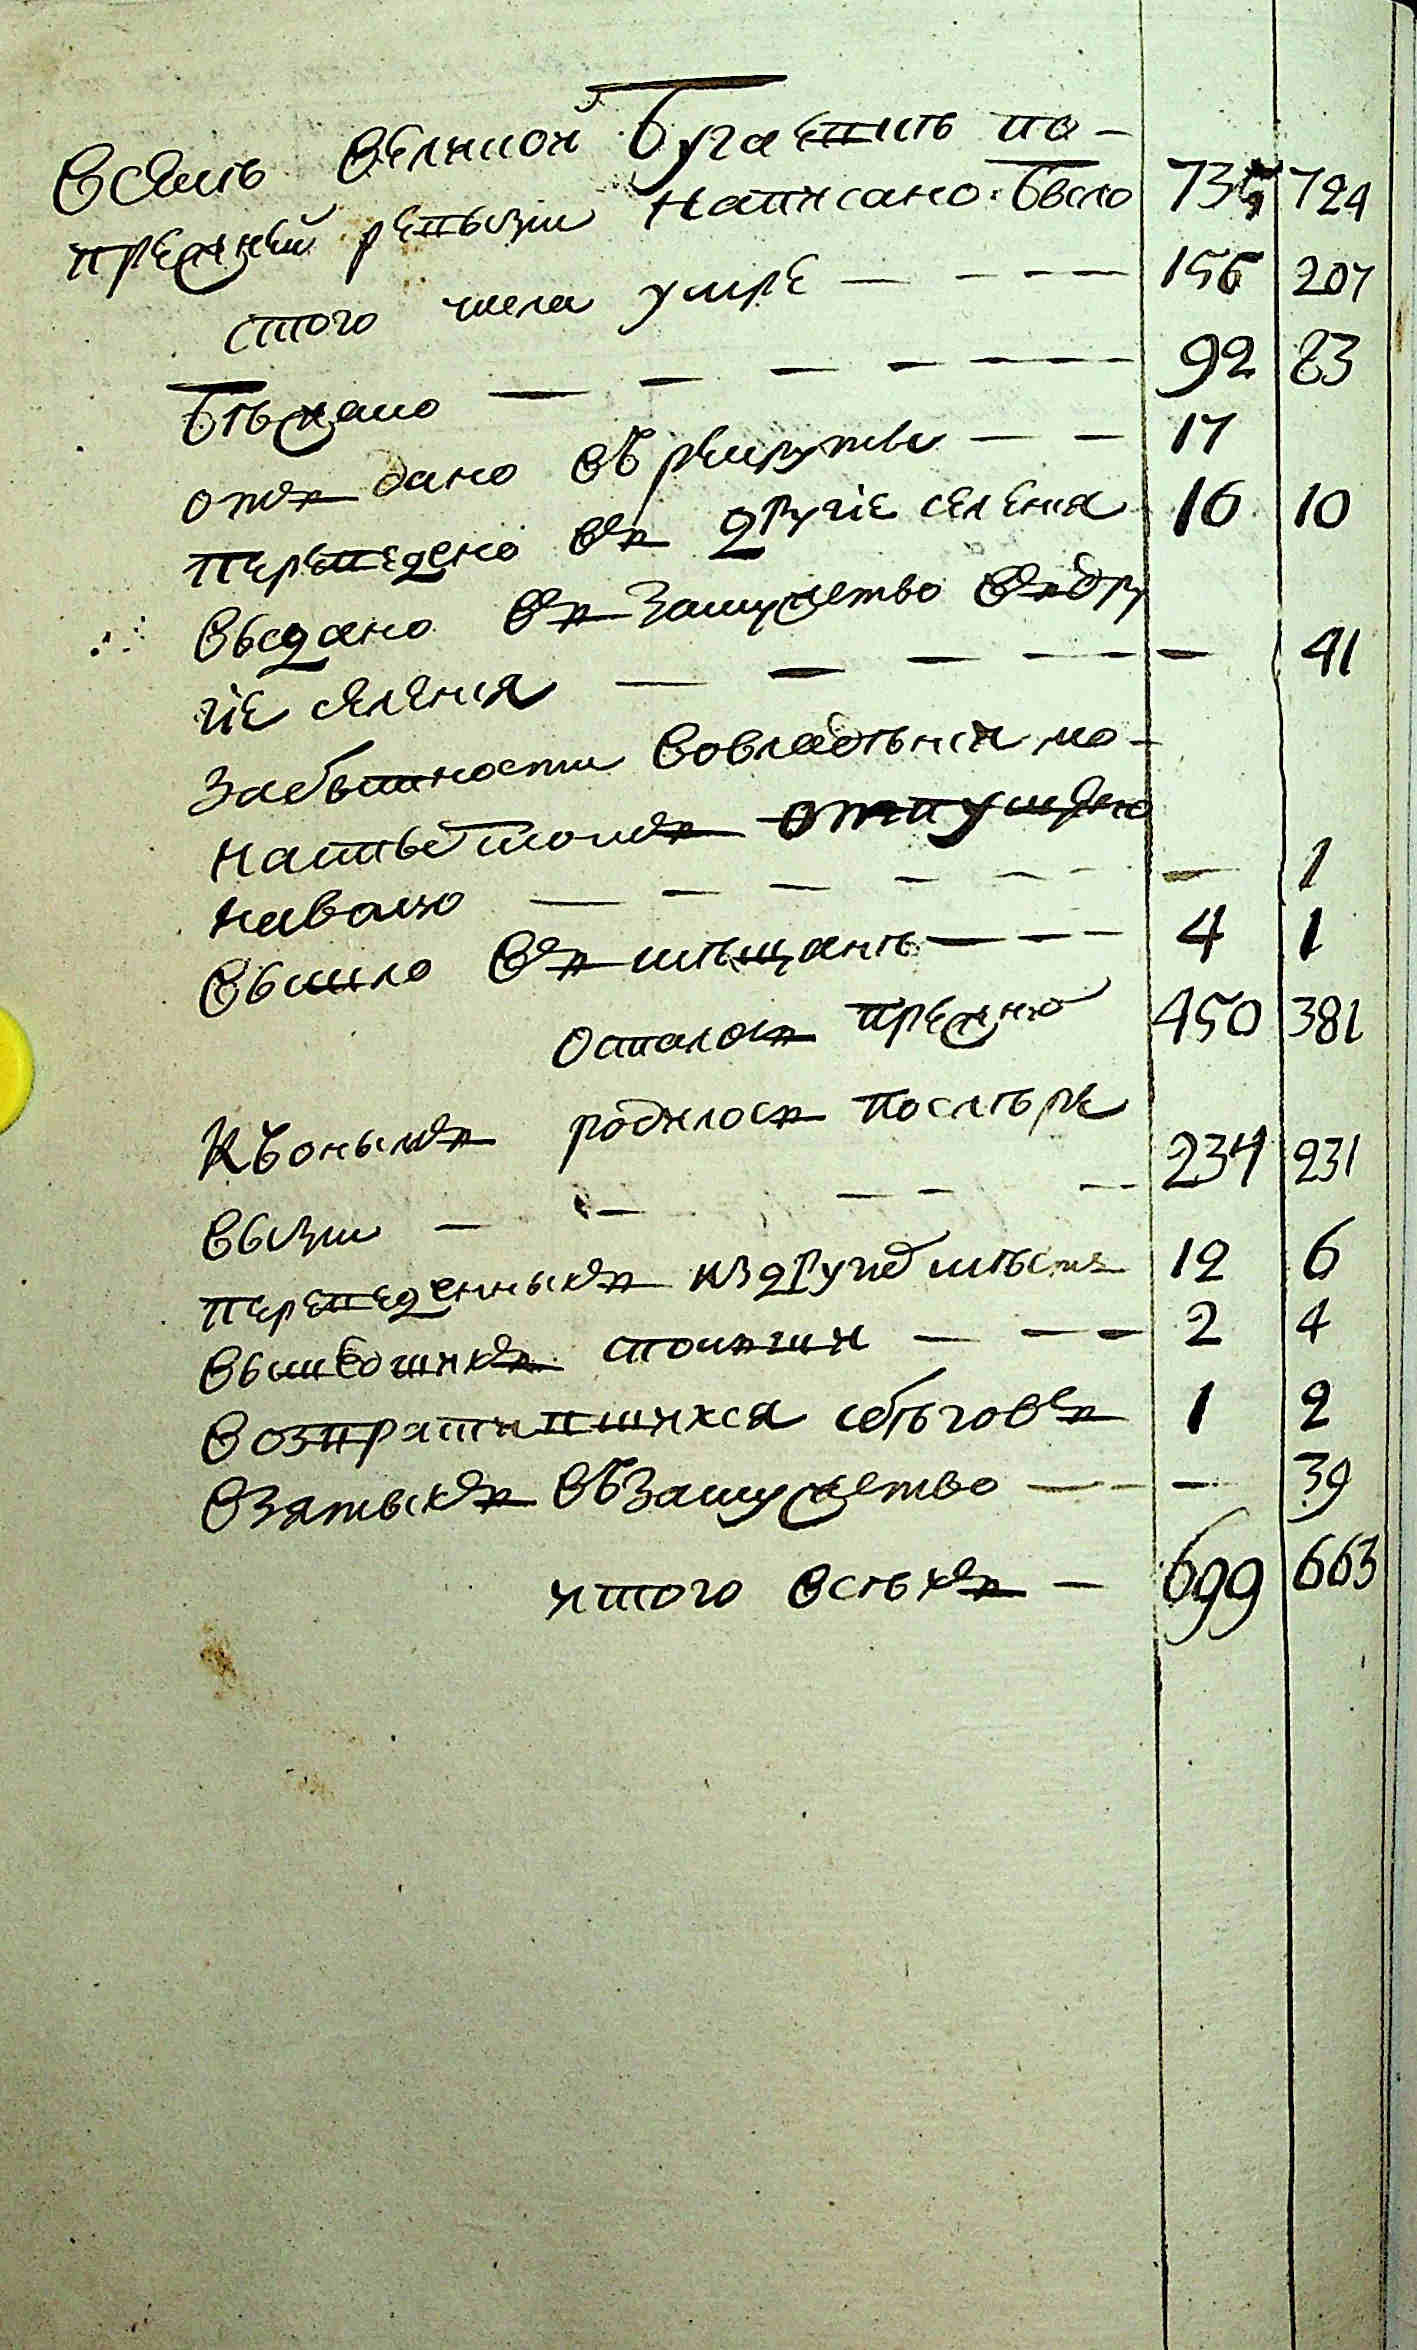 всемъ великой Бугаевкѣ по-
прежней ревизiи написано было 735 724
стого числа умре — — — — 156 207
бѣжало — — — — — — 92 83
отъ дано въ рекруты — — 17
переведено въ другiе селенiя 16 10
выдано въ замужство въ дру
гiе селенiя — — — — — — 41
забытности во владѣнiи мо-
настыромъ отпущено
наволю — — — — — — — 1
вышло въ мѣщанѣ — — — 4 1
осталось прежнихъ 450 381
Къонымъ родилось послѣ ре
визiи — — — — — 234 231
переведенныхъ из другихъ мѣстъ 12 6
вышедшихъ — — — 2 4
возвратившихся събѣговъ 1 2
взятыхъ въ замужство — — — 39
итого всѣхъ — 699 663